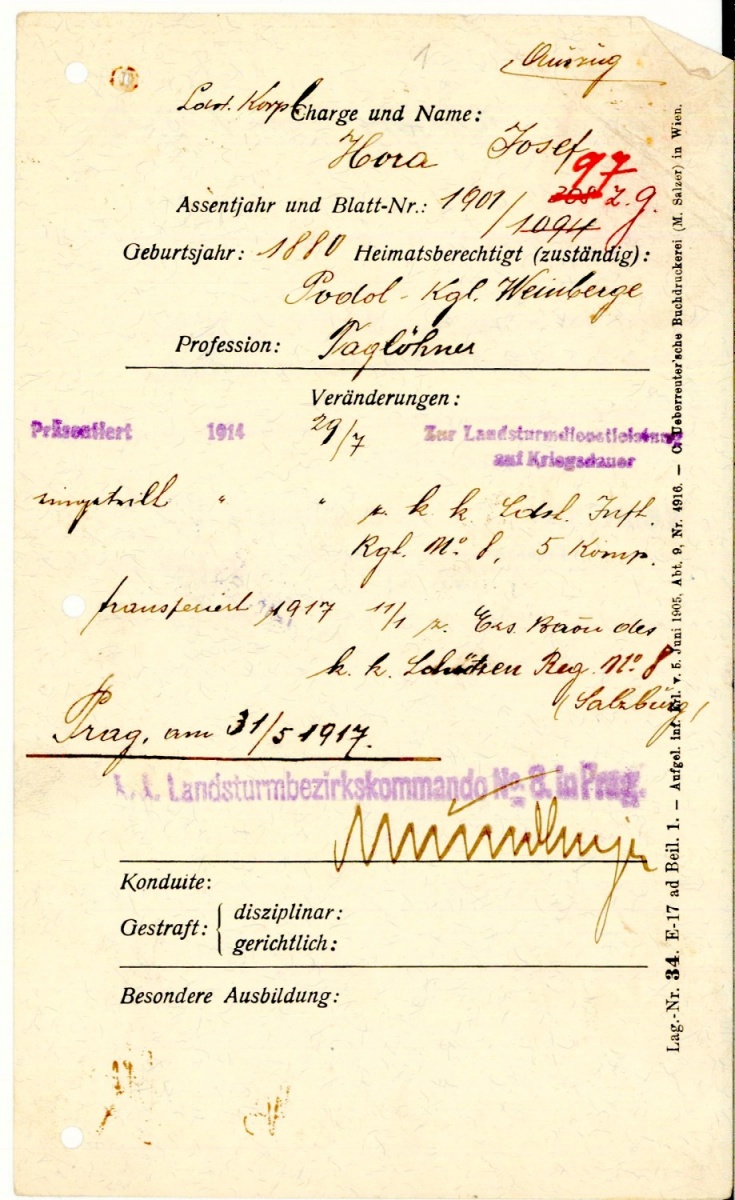 Auszug
Ldst. Korpl
Charge und Name:
Hora Josef
97
Assentjahr und Blatt-Nr.: 1901/ 308 Z. g.
1094
Geburtsjahr: 1880 Heimatsberechtigt (zuständig):
Podol - Kgl. Weinberge
Profession: Taglöhner
Veränderungen:
Präsentiert 1914 29/7 Zur Landsturmdienstleistung
auf Kriegsdauer
eingeteilt " " z. k. k. Ldst. Inft.
Rgt. No. 8, 5 Komp.
transferiert 1917 11/1 z. Ers. Baon des
k. k. Schützen Reg. No 8
(Salzburg)
Prag, am 31/5 1917.
k. k. Landsturmbezirkskommando No. 8. in Prag.
Konduite:
Gestraft: { disziplinar:
gerichtlich:
Besondere Ausbildung:
Lag.-Nr. 34. E-17 ad Beil. 1. — Aufgel. inf. Erl. v. 5. Juni 1905, Abt. 9, Nr. 4916. — C. Ueberreuter'sche Buchdruckerei (M. Salzer) in Wien.